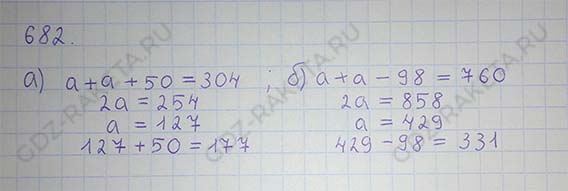 682.
а) a+a+50=304 ; б) a+a-98=760
2a=254 2a=858
a=127 a=429
127+50=177 429-98=331
GDZ-RAKETA.RU
GDZ-RAKETA.RU
GDZ-RAKETA.RU